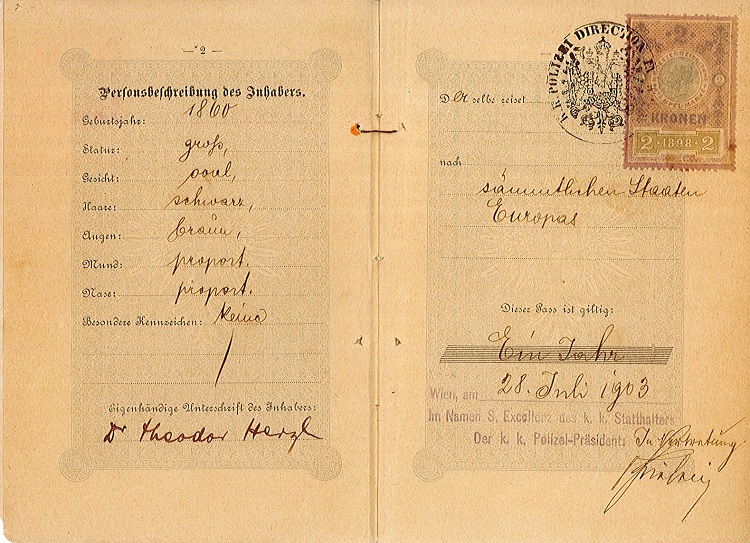 — 2 —
Personsbeschreibung des Inhabers.
Geburtsjahr: 1860
Statur: groß,
Gesicht: oval,
Haare: schwarz,
Augen: braun,
Mund: proport.
Nase: proport.
Besondere Kennzeichen: keine
Eigenhändige Unterschrift des Inhabers:
Dr Theodor Herzl
K. K. POLIZEI DIRECTION
2
KRONEN
2 · 1898 · 2
Derselbe reiset
nach
sämmtlichen Staaten
Europas
Dieser Pass ist giltig:
Ein Jahr
Wien, am 28. Juli 1903
Im Namen S. Excellenz des k. k. Statthalters
Der k. k. Polizei-Präsident:
In Vertretung